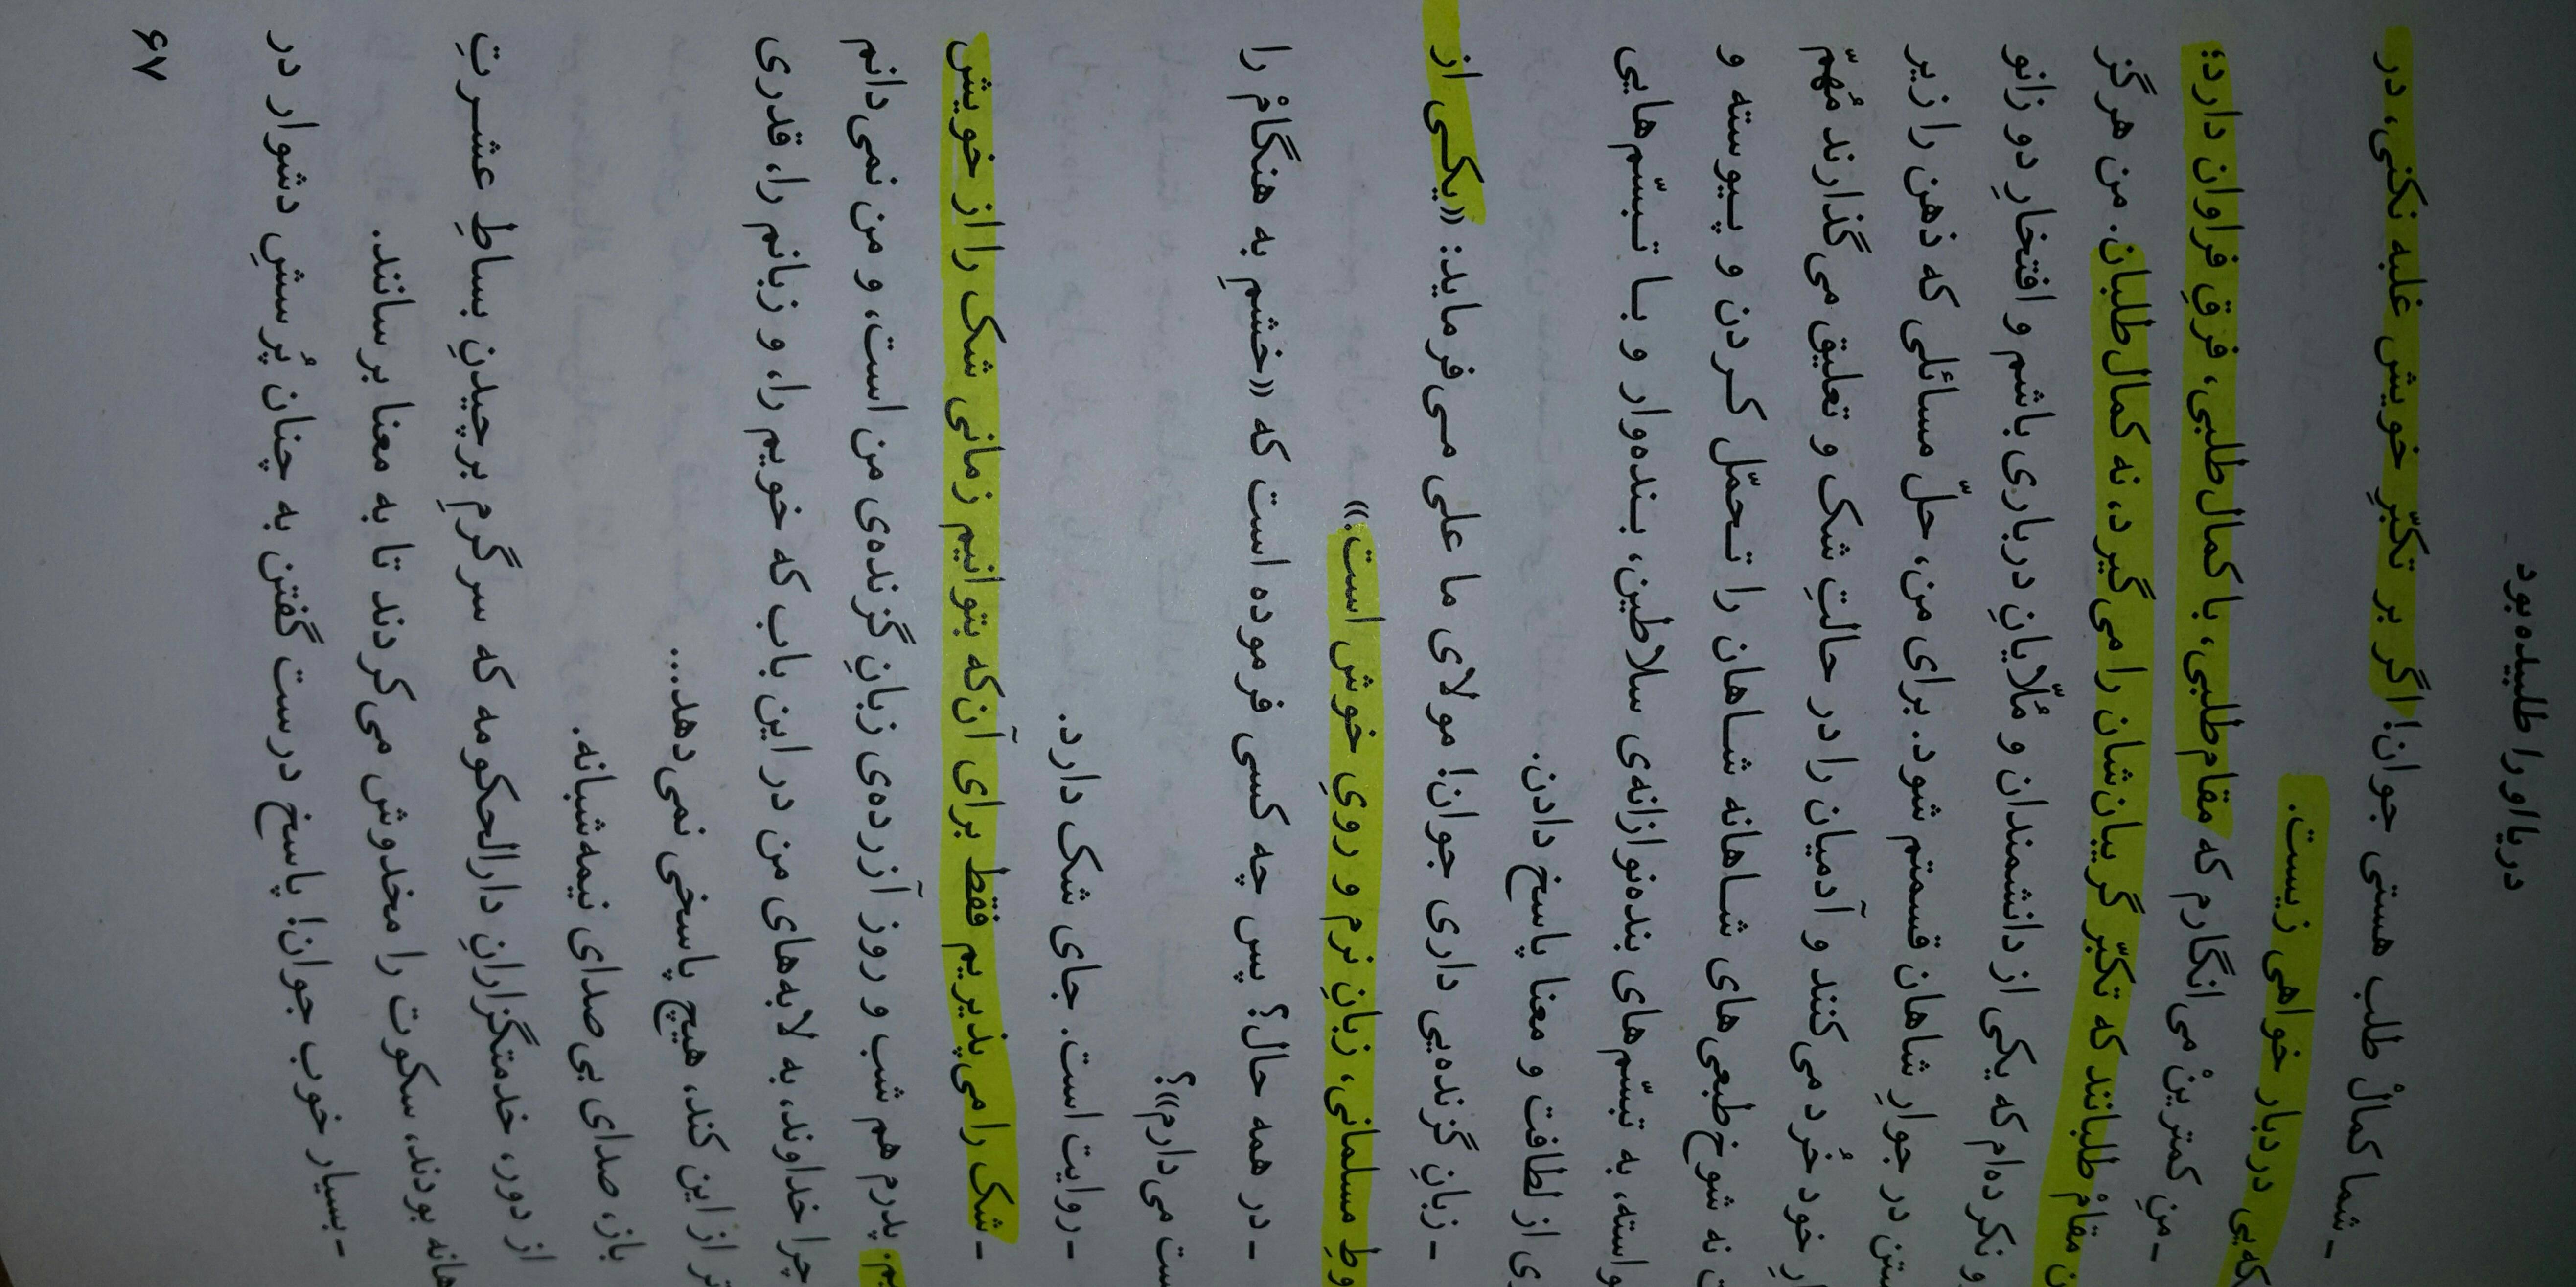 دریا او را طلبیده بود
ـ شما کمالْ‌طلب هستی جوان! اگر بر تکبّرِ خویش غلبه نکنی، در
دربار خواهی زیست.
ـ منِ کمترینْ می‌انگارم که مقام‌طلبی، با کمال‌طلبی، فرقِ فراوان دارد؛
مقامْ‌طلبانند که تکبّر گریبان‌شان را می‌گیرد، نه کمال‌طلبان. من هرگز
نکرده‌ام که یکی از دانشمندان و مُلّایانِ درباری باشم و افتخارِ دو زانو
در جوارِ شاهان قسمتم شود. برای من، حلّ مسائلی که ذهن را زیر
خود خُرد می‌کنند و آدمیان را در حالتِ شک و تعلیق می‌گذارند مُهمّ
نه شوخ‌طبعی‌های شاهانه شاهان را تحمّل کردن و پیوسته و
به تبسّم‌های بنده‌نوازانه‌ی سلاطین، بنده‌وار و با تبسّم‌هایی
از لطافت و معنا پاسخ دادن.
ـ زبانِ گزنده‌یی داری جوان! مولای ما علی می‌فرماید: «یکی از
مسلمانی، زبانِ نرم و رویِ خوش است.»
ـ در همه حال؟ پس چه کسی فرموده است که «خشمِ به هنگامْ را
می‌دارم»؟
ـ روایت است. جای شک دارد.
ـ شک را می‌پذیریم فقط برای آن‌که بتوانیم زمانی شک را از خویش
پدرم هم شب و روز آزرده‌ی زبانِ گزنده‌ی من است، و من نمی‌دانم
چرا خداوند، به لابه‌های من در این باب که خویم را، و زبانم را، قدری
از این کند، هیچ پاسخی نمی‌دهد...
باز، صدای بی‌صدای نیمه‌شبانه.
از دور، خدمتگزارانِ دارالحکومه که سرگرمِ برچیدنِ بساطِ عشرتِ
بودند، سکوت را مخدوش می‌کردند تا به معنا برسانند.
ـ بسیار خوب جوان! پاسخ درست گفتن به چنان پُرسشِ دشوار در
۶۷